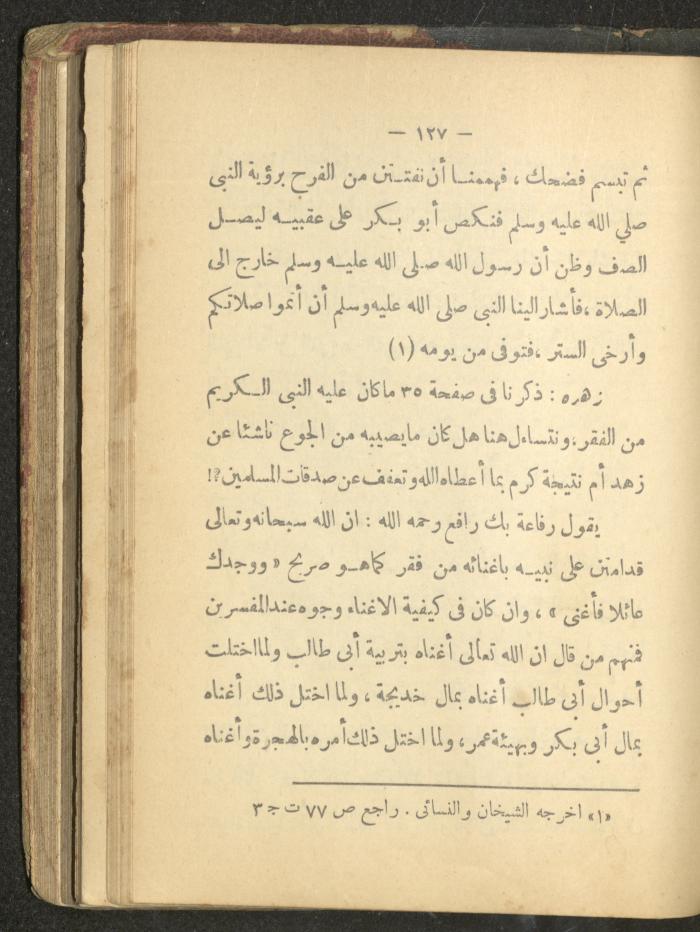 — ١٢٧ —
ثم تبسم فضحك ، فهممنا أن نفتتن من الفرح برؤية النبي
صلي الله عليه وسلم فنكص أبو بكر على عقبيه ليصل
الصف وظن أن رسول الله صلى الله عليه وسلم خارج الى
الصلاة ،فأشار الينا النبي صلى الله عليه وسلم أن أتموا صلاتكم
وأرخى الستر ،فتوفى من يومه (١)
زهده : ذكرنا فى صفحة ٣٥ ما كان عليه النبى الكريم
من الفقر،ونتساءل هنا هل كان مايصيبه من الجوع ناشئا عن
زهد أم نتيجة كرم بما أعطاه الله وتعفف عن صدقات المسلمين ؟!
يقول رفاعة بك رافع رحمه الله : ان الله سبحانه وتعالى
قد امتن على نبيه باغنائه من فقر كما هو صريح « ووجدك
عائلا فأغنى » ، وان كان فى كيفية الاغناء وجوه عند المفسرين
فمنهم من قال ان الله تعالى أغناه بتربية أبى طالب ولما اختلت
أحوال أبى طالب أغناه بمال خديجة ، ولما اختل ذلك أغناه
بمال أبى بكر وبهيئة عمر ، ولما اختل ذلك أمره بالهجرة وأغناه
«١» اخرجه الشيخان والنسائى . راجع ص ٧٧ ت ج ٣